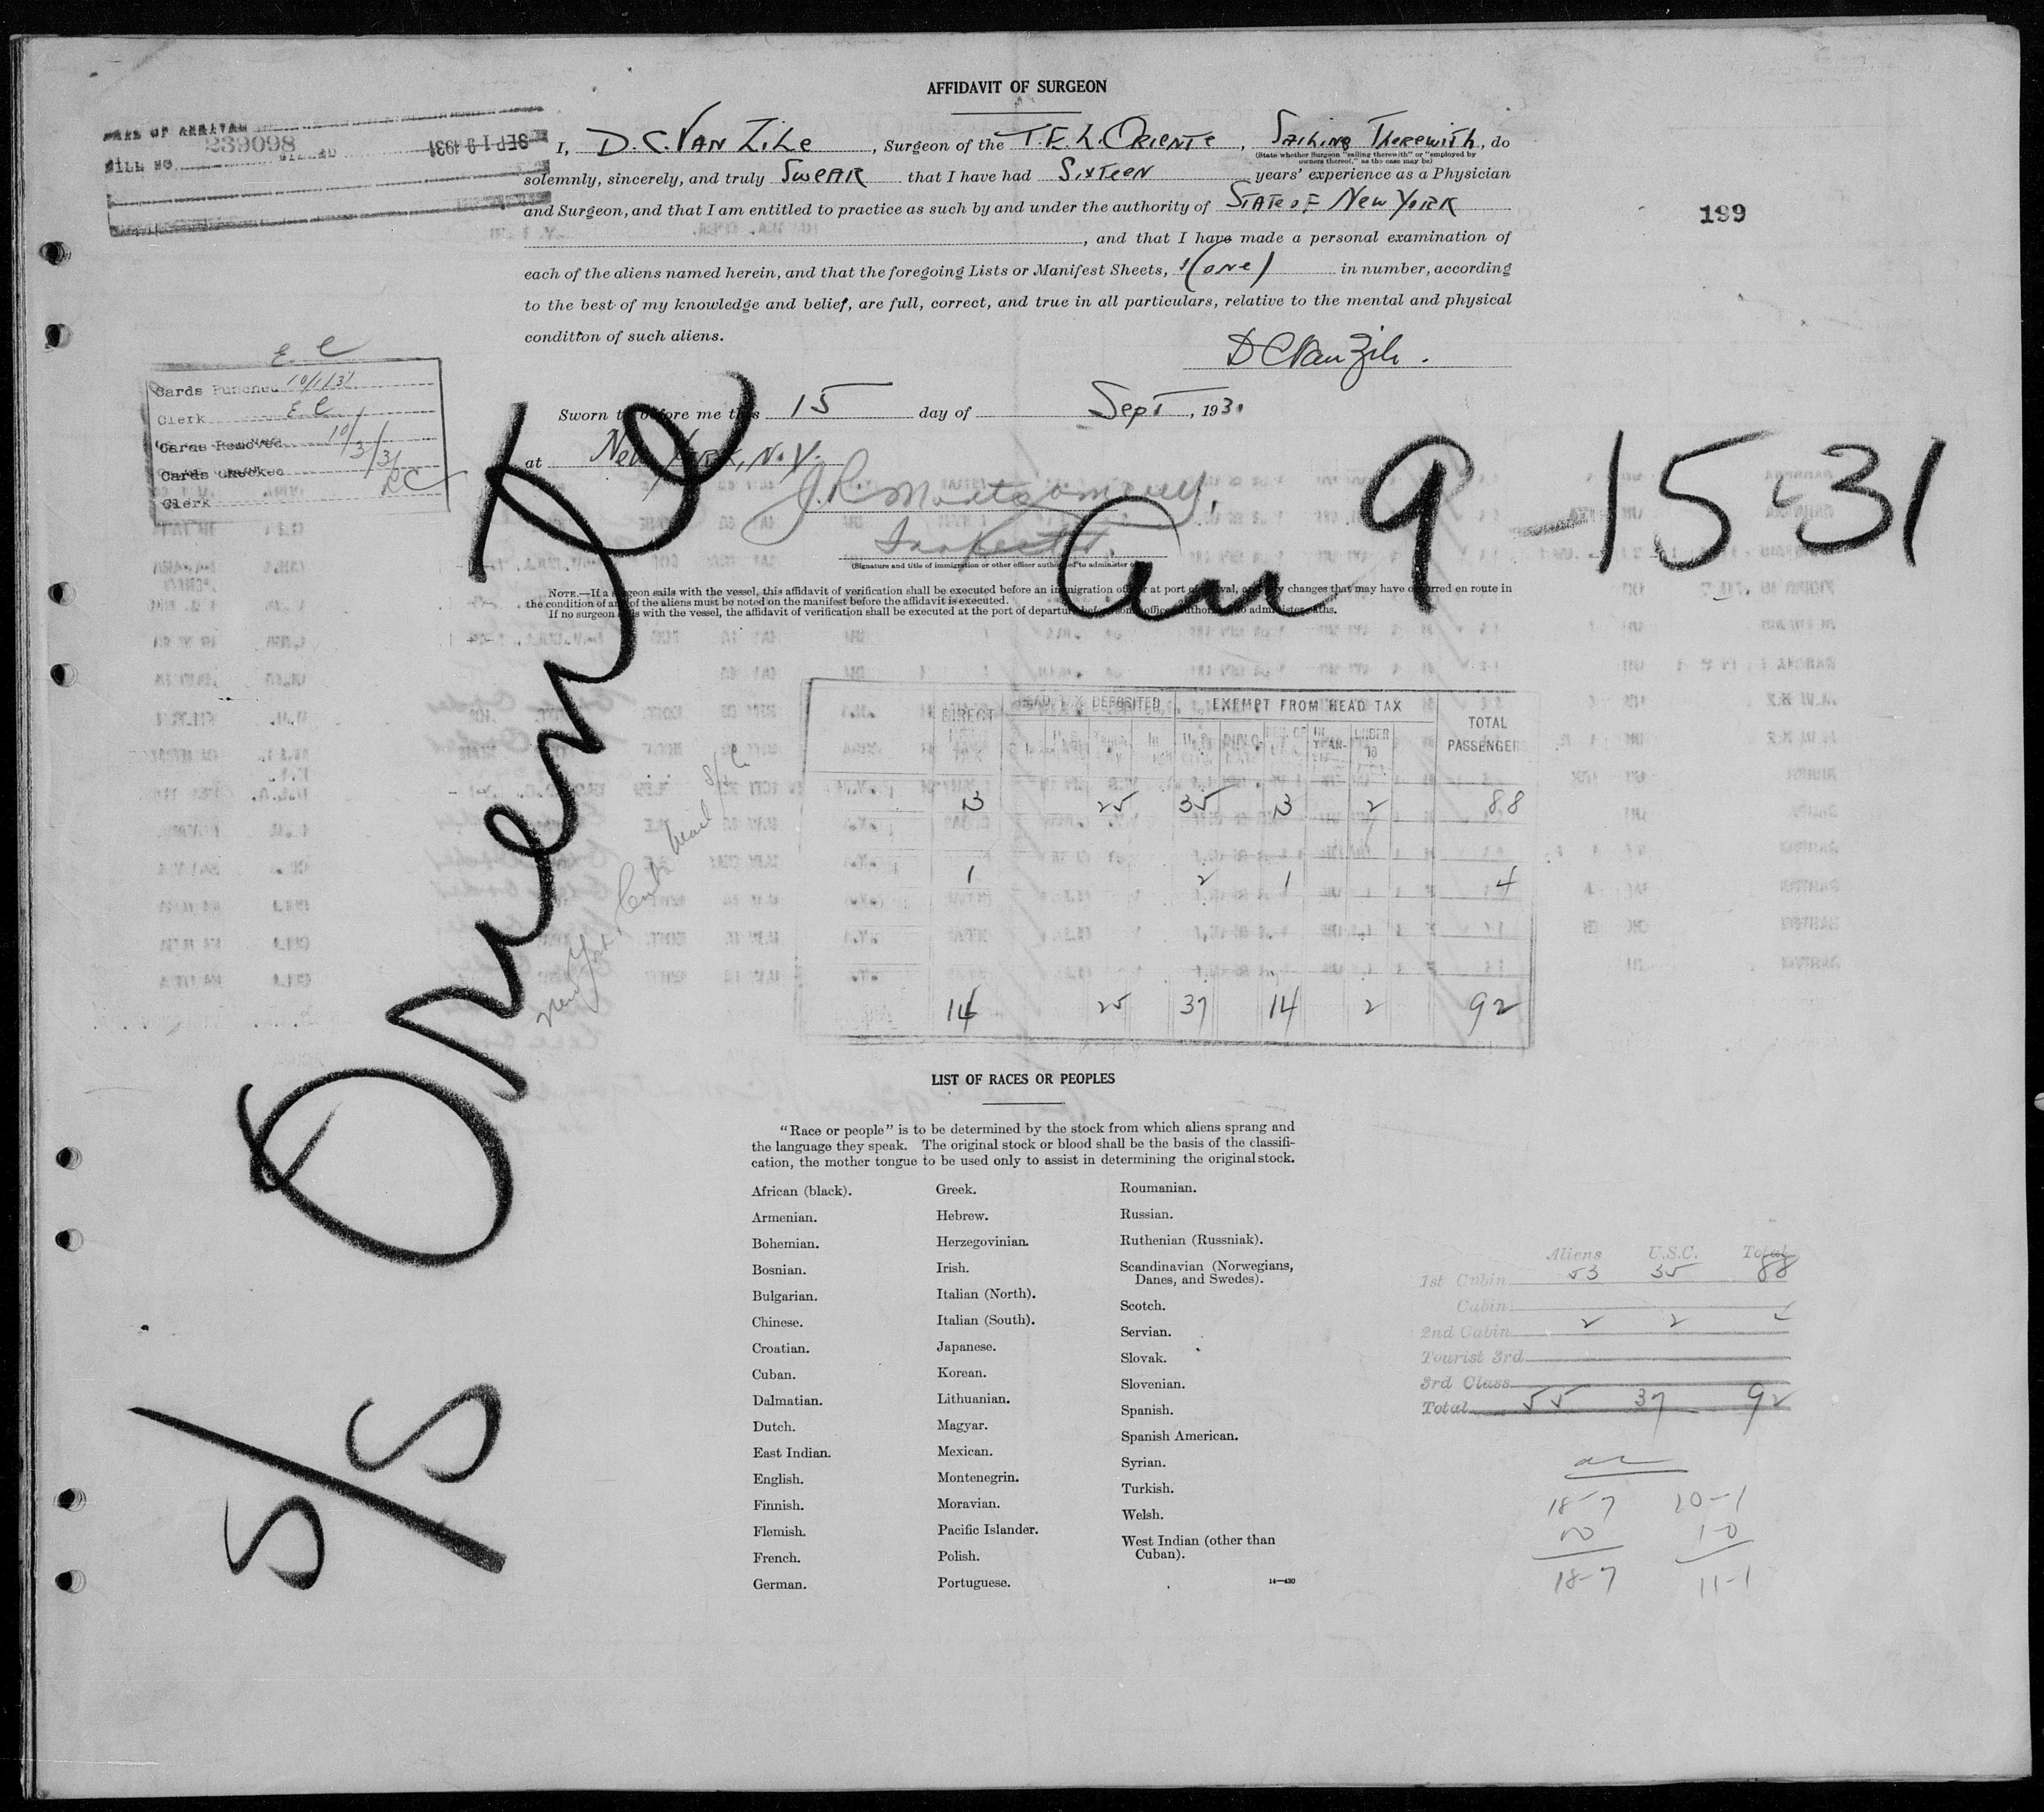 AFFIDAVIT OF SURGEON
DATE OF ARRIVAL
BILL NO. 239098
SEP 1 9 1931
I, D. C. VAN ZILE, Surgeon of the T.E.L. ORIENTE, SAILING THEREWITH, do
(State whether Surgeon "sailing therewith" or "employed by
owners thereof," as the case may be)
solemnly, sincerely, and truly SWEAR that I have had SIXTEEN years' experience as a Physician
and Surgeon, and that I am entitled to practice as such by and under the authority of STATE OF NEW YORK
, and that I have made a personal examination of
each of the aliens named herein, and that the foregoing Lists or Manifest Sheets, 1 (one) in number, according
to the best of my knowledge and belief, are full, correct, and true in all particulars, relative to the mental and physical
condition of such aliens.
D C Van Zile.
199
E. C
Cards Punched 10/1/31
Clerk E C
Cards Removed 10/3/31
Cards Checked
Clerk RC
Sworn to before me this 15 day of Sept, 1931
at New York, N.Y.
J. R. Montgomery,
Inspector.
(Signature and title of immigration or other officer authorized to administer
NOTE.—If a surgeon sails with the vessel, this affidavit of verification shall be executed before an immigration officer at port of arrival, and any changes that may have occurred en route in
the condition of any of the aliens must be noted on the manifest before the affidavit is executed.
If no surgeon sails with the vessel, the affidavit of verification shall be executed at the port of departure before some officer authorized to administer oaths.
S/S Oriente
Arr 9-15-31
New York & Cuba Mail S/S Co
DIRECT HEAD TAX DEPOSITED EXEMPT FROM HEAD TAX TOTAL
PASSENGERS
U.S. DIPLO- IN TRAN- UNDER 16
13 25 35 13 2 88
1 2 1 4
14 25 37 14 2 92
LIST OF RACES OR PEOPLES
"Race or people" is to be determined by the stock from which aliens sprang and
the language they speak. The original stock or blood shall be the basis of the classifi-
cation, the mother tongue to be used only to assist in determining the original stock.
African (black).
Armenian.
Bohemian.
Bosnian.
Bulgarian.
Chinese.
Croatian.
Cuban.
Dalmatian.
Dutch.
East Indian.
English.
Finnish.
Flemish.
French.
German.
Greek.
Hebrew.
Herzegovinian.
Irish.
Italian (North).
Italian (South).
Japanese.
Korean.
Lithuanian.
Magyar.
Mexican.
Montenegrin.
Moravian.
Pacific Islander.
Polish.
Portuguese.
Roumanian.
Russian.
Ruthenian (Russniak).
Scandinavian (Norwegians,
Danes, and Swedes).
Scotch.
Servian.
Slovak.
Slovenian.
Spanish.
Spanish American.
Syrian.
Turkish.
Welsh.
West Indian (other than
Cuban).
14—430
Aliens U.S.C. Total
1st Cabin 53 35 88
Cabin
2nd Cabin 2 2
Tourist 3rd
3rd Class
Total 55 37 92
18-7 10-1
1-0
18-7 11-1